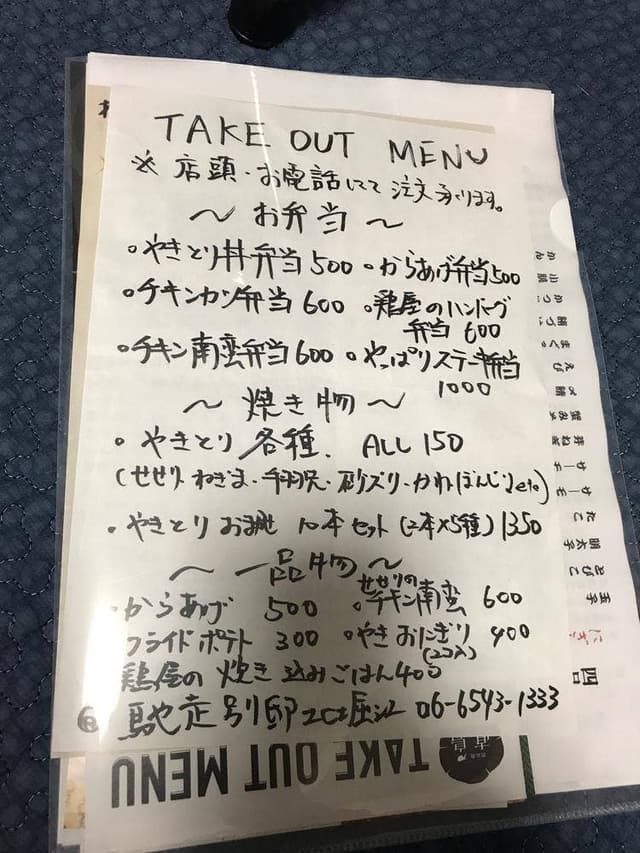 TAKE OUT MENU
※店頭・お電話にて注文承ります。
〜お弁当〜
・やきとり丼弁当500 ・からあげ弁当500
・チキンカツ弁当600 ・鶏屋のハンバーグ
弁当600
・チキン南蛮弁当600 ・やっぱりステーキ弁当
1000
〜焼き物〜
・やきとり各種、ALL 150
(せせり・ねぎま・手羽先・砂ズリ・かわ・ぼんじりetc)
・やきとりお任せ 10本セット(2本×5種)1350
〜一品物〜
・からあげ 500 ・せせりの
チキン南蛮 600
フライドポテト 300 ・やきおにぎり 400
(2コ入)
鶏屋の炊き込みごはん400
馳走 別邸 北堀江 06-6543-1333
TAKE OUT MENU